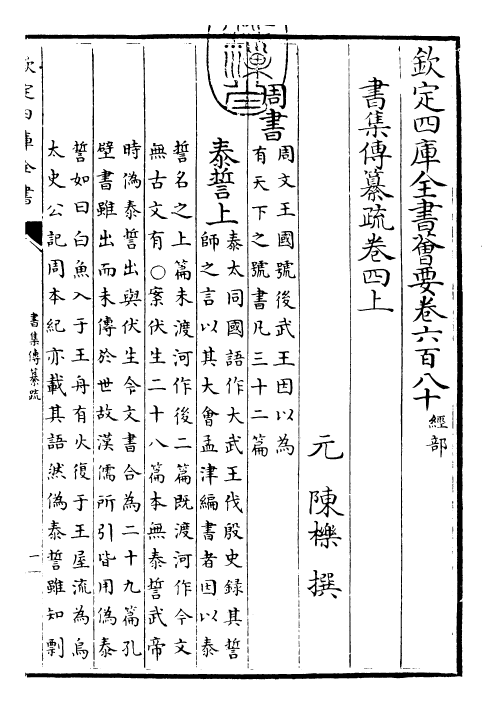 欽定四庫全書薈要卷六百八十 經部
書集傳纂疏卷四上
元 陳櫟 撰
周書
周文王國號後武王因以為
有天下之號書凡三十二篇
泰誓上
泰太同國語作大武王伐殷史錄其誓
師之言以其大會孟津編書者因以泰
誓名之上篇未渡河作後二篇既渡河作今文
無古文有○案伏生二十八篇本無泰誓武帝
時偽泰誓出與伏生今文書合為二十九篇孔
壁書雖出而未傳於世故漢儒所引皆用偽泰
誓如曰白魚入于王舟有火復于王屋流為烏
太史公記周本紀亦載其語然偽泰誓雖知剽
欽定四庫全書
書集傳纂疏
一